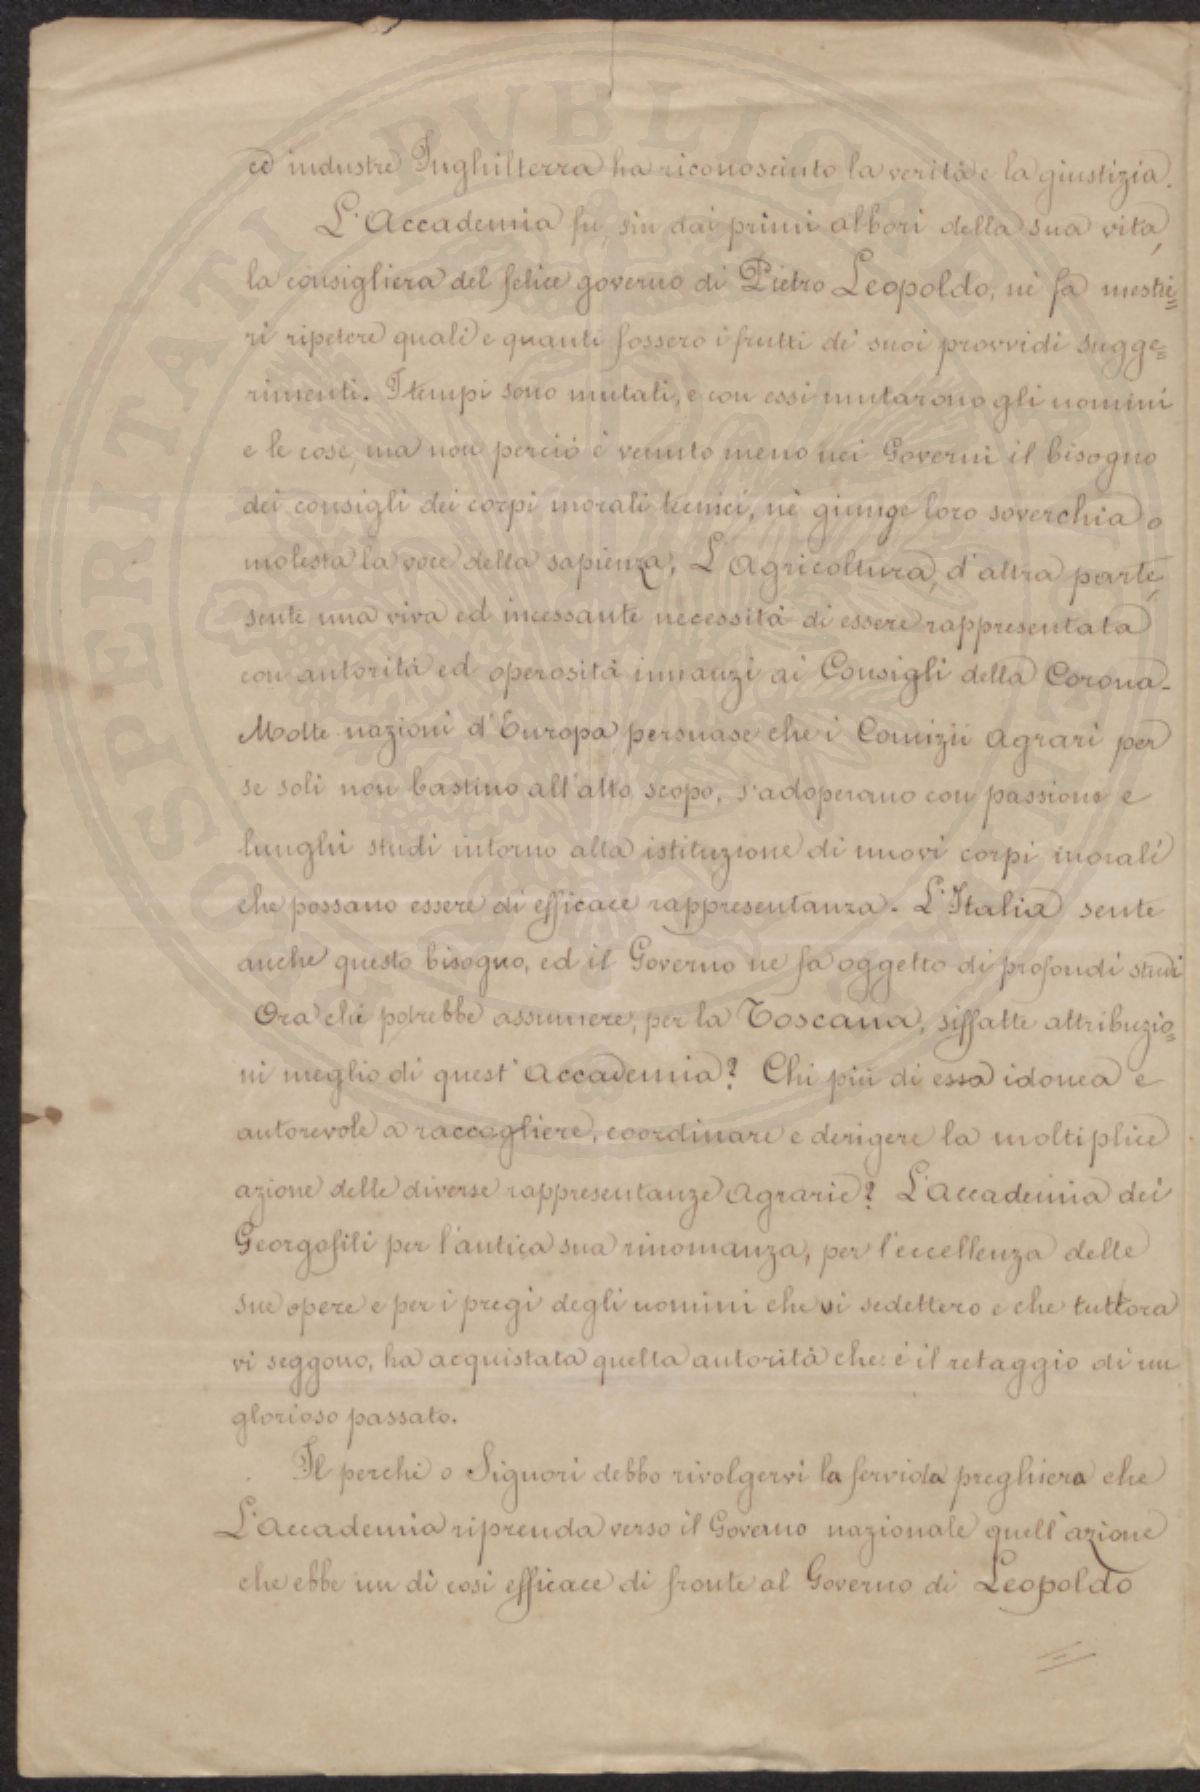 ed industre Inghilterra ha riconosciuto la verità e la giustizia.
L'Accademia fu, sin dai primi albori della sua vita,
la consigliera del felice governo di Pietro Leopoldo, nè fa mestie=
ri ripetere quali e quanti fossero i frutti de' suoi provvidi sugge=
rimenti. I tempi sono mutati, e con essi mutarono gli uomini
e le cose, ma non perciò è venuto meno nei Governi il bisogno
dei consigli dei corpi morali tecnici, nè giunge loro soverchia o
molesta la voce della sapienza. L'Agricoltura, d'altra parte,
sente una viva ed incessante necessità di essere rappresentata
con autorità ed operosità innanzi ai Consigli della Corona.
Molte nazioni d'Europa, persuase che i Comizii Agrari per
se soli non bastino all'alto scopo, s'adoperano con passione e
lunghi studi intorno alla istituzione di nuovi corpi morali
che possano essere di efficace rappresentanza. L'Italia sente
anche questo bisogno, ed il Governo ne fa oggetto di profondi studi
Ora chi potrebbe assumere, per la Toscana, siffatte attribuzio=
ni meglio di quest'Accademia? Chi più di essa idonea e
autorevole a raccogliere, coordinare e derigere la moltiplice
azione delle diverse rappresentanze Agrarie? L'Accademia dei
Georgofili per l'antica sua rinomanza, per l'eccellenza delle
sue opere e per i pregi degli uomini che vi sedettero e che tuttora
vi seggono, ha acquistata quella autorità che è il retaggio di un
glorioso passato.
Il perchè o Signori debbo rivolgervi la fervida preghiera che
L'Accademia riprenda verso il Governo nazionale quell'azione
che ebbe un dì così efficace di fronte al Governo di Leopoldo
PROSPERITATI PVBLICAE